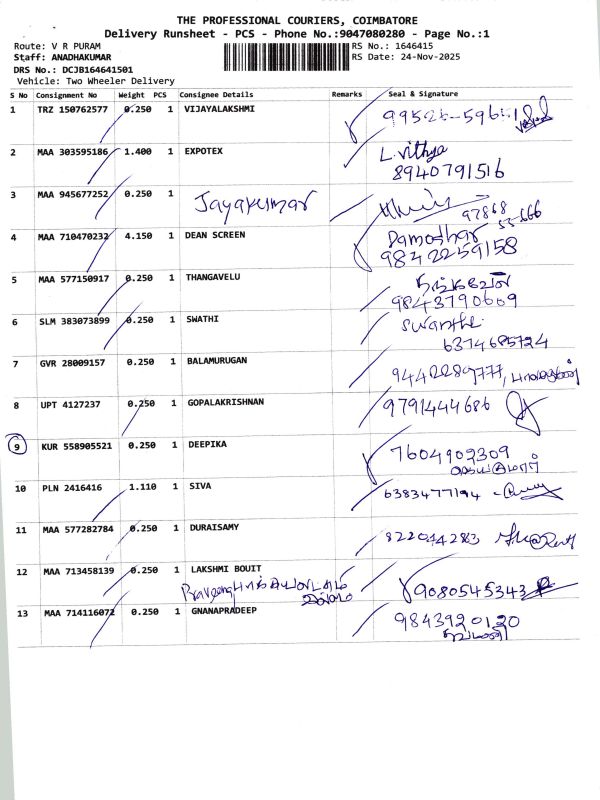 THE PROFESSIONAL COURIERS, COIMBATORE
Delivery Runsheet - PCS - Phone No.:9047080280 - Page No.:1
Route: V R PURAM
RS No.: 1646415
Staff: ANADHAKUMAR
RS Date: 24-Nov-2025
DRS No.: DCJB164641501
Vehicle: Two Wheeler Delivery
S No Consignment No Weight PCS Consignee Details Remarks Seal & Signature
1 TRZ 150762577 0.250 1 VIJAYALAKSHMI
2 MAA 303595186 1.400 1 EXPOTEX L. Vithya
8940791516
3 MAA 945677252 0.250 1 Jayakumar
97868
55-666
4 MAA 710470232 4.150 1 DEAN SCREEN Damodhar
9842259158
5 MAA 577150917 0.250 1 THANGAVELU தங்கவேல்
9843790609
6 SLM 383073899 0.250 1 SWATHI
6374685724
7 GVR 28009157 0.250 1 BALAMURUGAN 9442289777,
8 UPT 4127237 0.250 1 GOPALAKRISHNAN 9791444686
9 KUR 558905521 0.250 1 DEEPIKA 7604902309
ஜெயக்குமார்
10 PLN 2416416 1.110 1 SIVA 6383477194
11 MAA 577282784 0.250 1 DURAISAMY
12 MAA 713458139 0.250 1 LAKSHMI BOUIT
9080545343
13 MAA 714116072 0.250 1 GNANAPRADEEP 9843920120